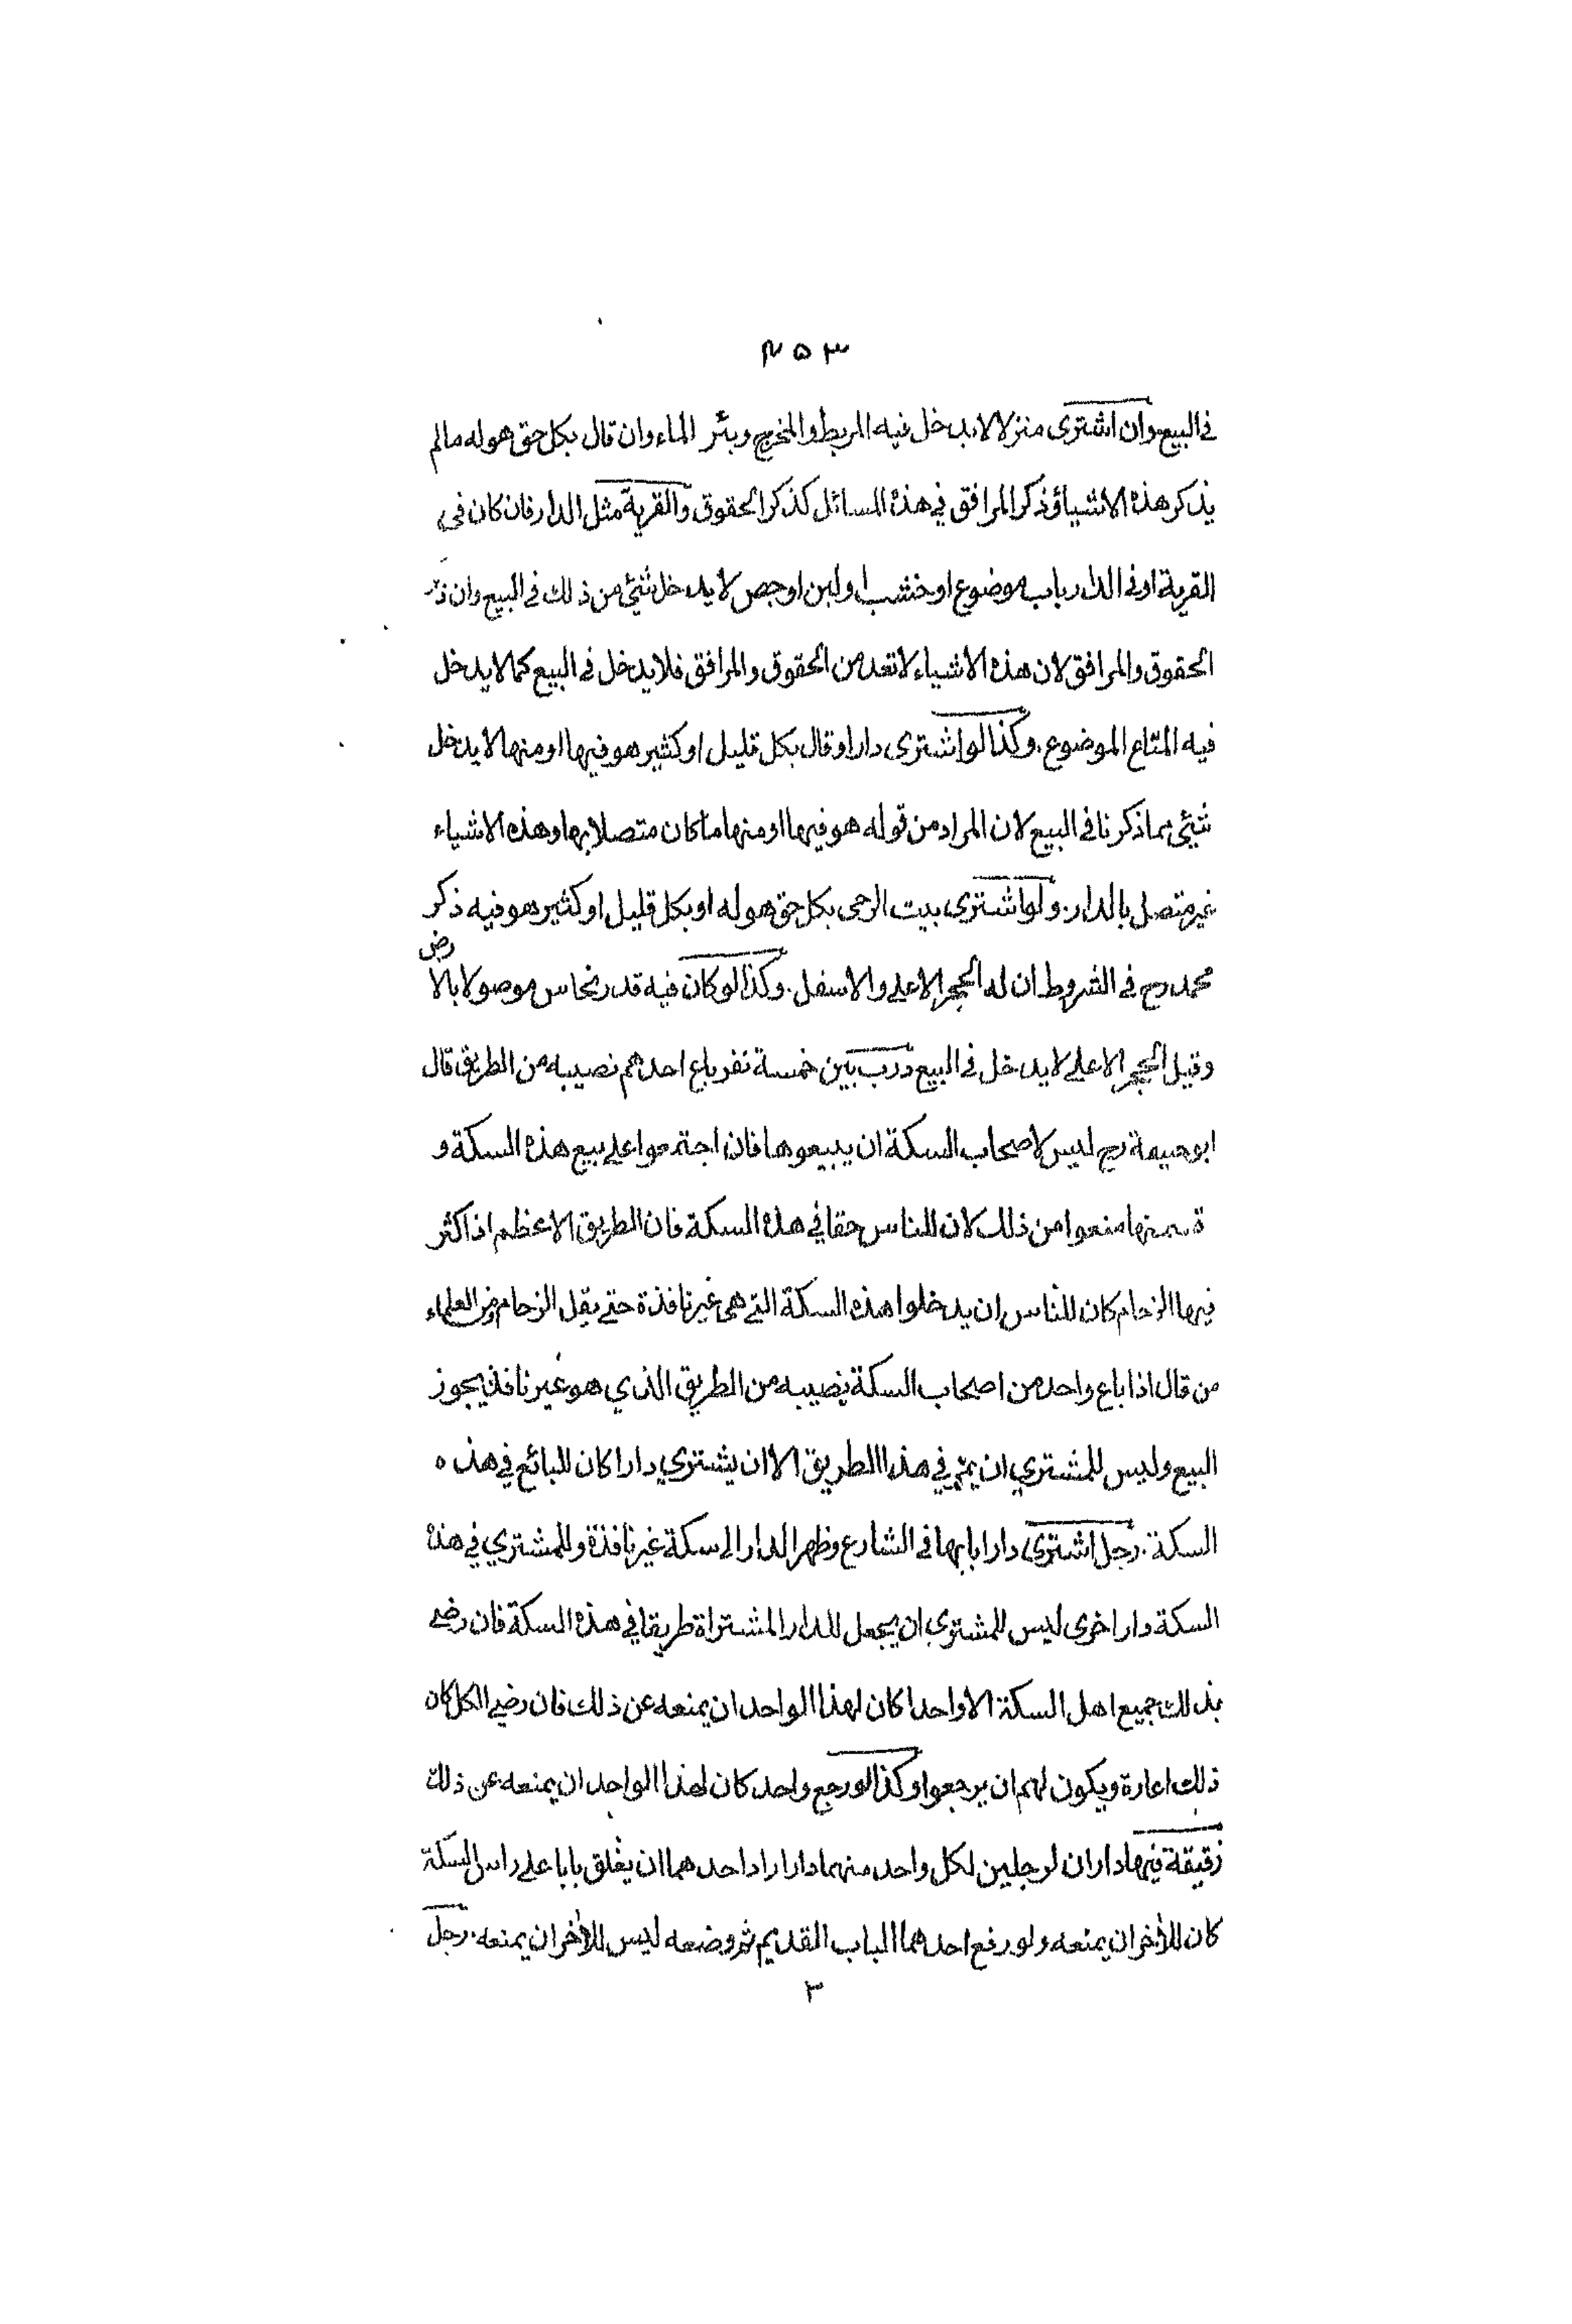 ٣٥٣
في البيع وان اشترى منزلا لا يدخل فيه المربط والمخرج وبئر الماء وان قال بكل حق هو له ما لم
يذكر هذه الاشياء وذكر المرافق في هذه المسائل كذكر الحقوق والقرية مثل الدار فان كان في
القرية او في الدار باب موضوع او خشب او لبن او جص لا يدخل شئ من ذلك في البيع وان ذكر
الحقوق والمرافق لان هذه الاشياء لا تعد من الحقوق والمرافق فلا يدخل في البيع كما لا يدخل
فيه المتاع الموضوع . وكذا لو اشترى دارا وقال بكل قليل او كثير هو فيها او منها لا يدخل
شئ مما ذكرنا في البيع لان المراد من قوله هو فيها او منها ما كان متصلا بها وهذه الاشياء
غير متصل بالدار . ولو اشترى بيت الرحى بكل حق هو له او بكل قليل او كثير هو فيه ذكر
محمد رح في الشروط ان له الحجر الاعلى والاسفل . وكذا لو كان فيه قدر نحاس موصولا بالارض
وقيل الحجر الاعلى لا يدخل في البيع درب بين خمسة نفر باع احدهم نصيبه من الطريق قال
ابو حنيفة رح ليس لاصحاب السكة ان يبيعوها فان اجتمعوا على بيع هذه السكة و
قسمتها منعوا من ذلك لان للناس حقا في هذه السكة فان الطريق الاعظم اذا كثر
فيها الزحام كان للناس ان يدخلوا هذه السكة التي هى غير نافذة حتى يقل الزحام ومن العلماء
من قال اذا باع واحد من اصحاب السكة نصيبه من الطريق الذي هو غير نافذ يجوز
البيع وليس للمشتري ان يمر في هذا الطريق الا ان يشتري دارا كان للبائع في هذه
السكة . رجل اشترى دارا بابها في الشارع وظهر الدار الى سكة غير نافذة وللمشتري في هذه
السكة دار اخرى ليس للمشتري ان يجعل للدار المشتراة طريقا في هذه السكة فان رضى
بذلك جميع اهل السكة الا واحدا كان لهذا الواحد ان يمنعه عن ذلك فان رضي الكل كان
ذلك اعارة ويكون لهم ان يرجعوا وكذا لو رجع واحد كان لهذا الواحد ان يمنعه عن ذلك
زقيقة فيها داران لرجلين لكل واحد منهما دار اراد احدهما ان يغلق بابا على راس السكة
كان للآخر ان يمنعه ولو رفع احدهما الباب القديم ثم وضعه ليس للآخر ان يمنعه . رجل
٣